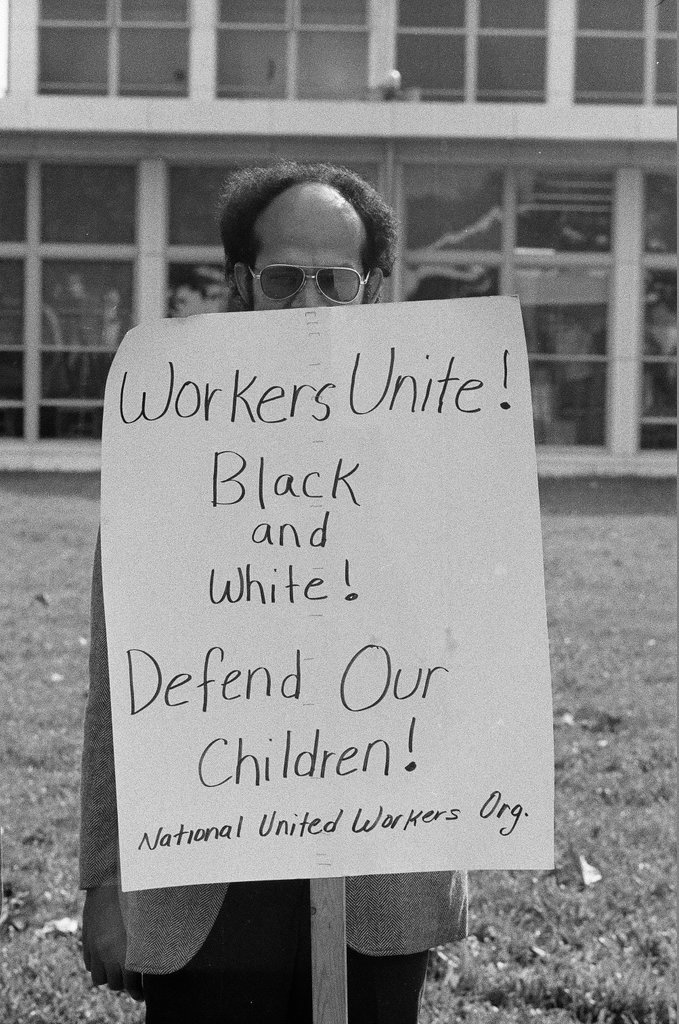 Workers Unite!
Black
and
White!
Defend Our
Children!
National United Workers Org.